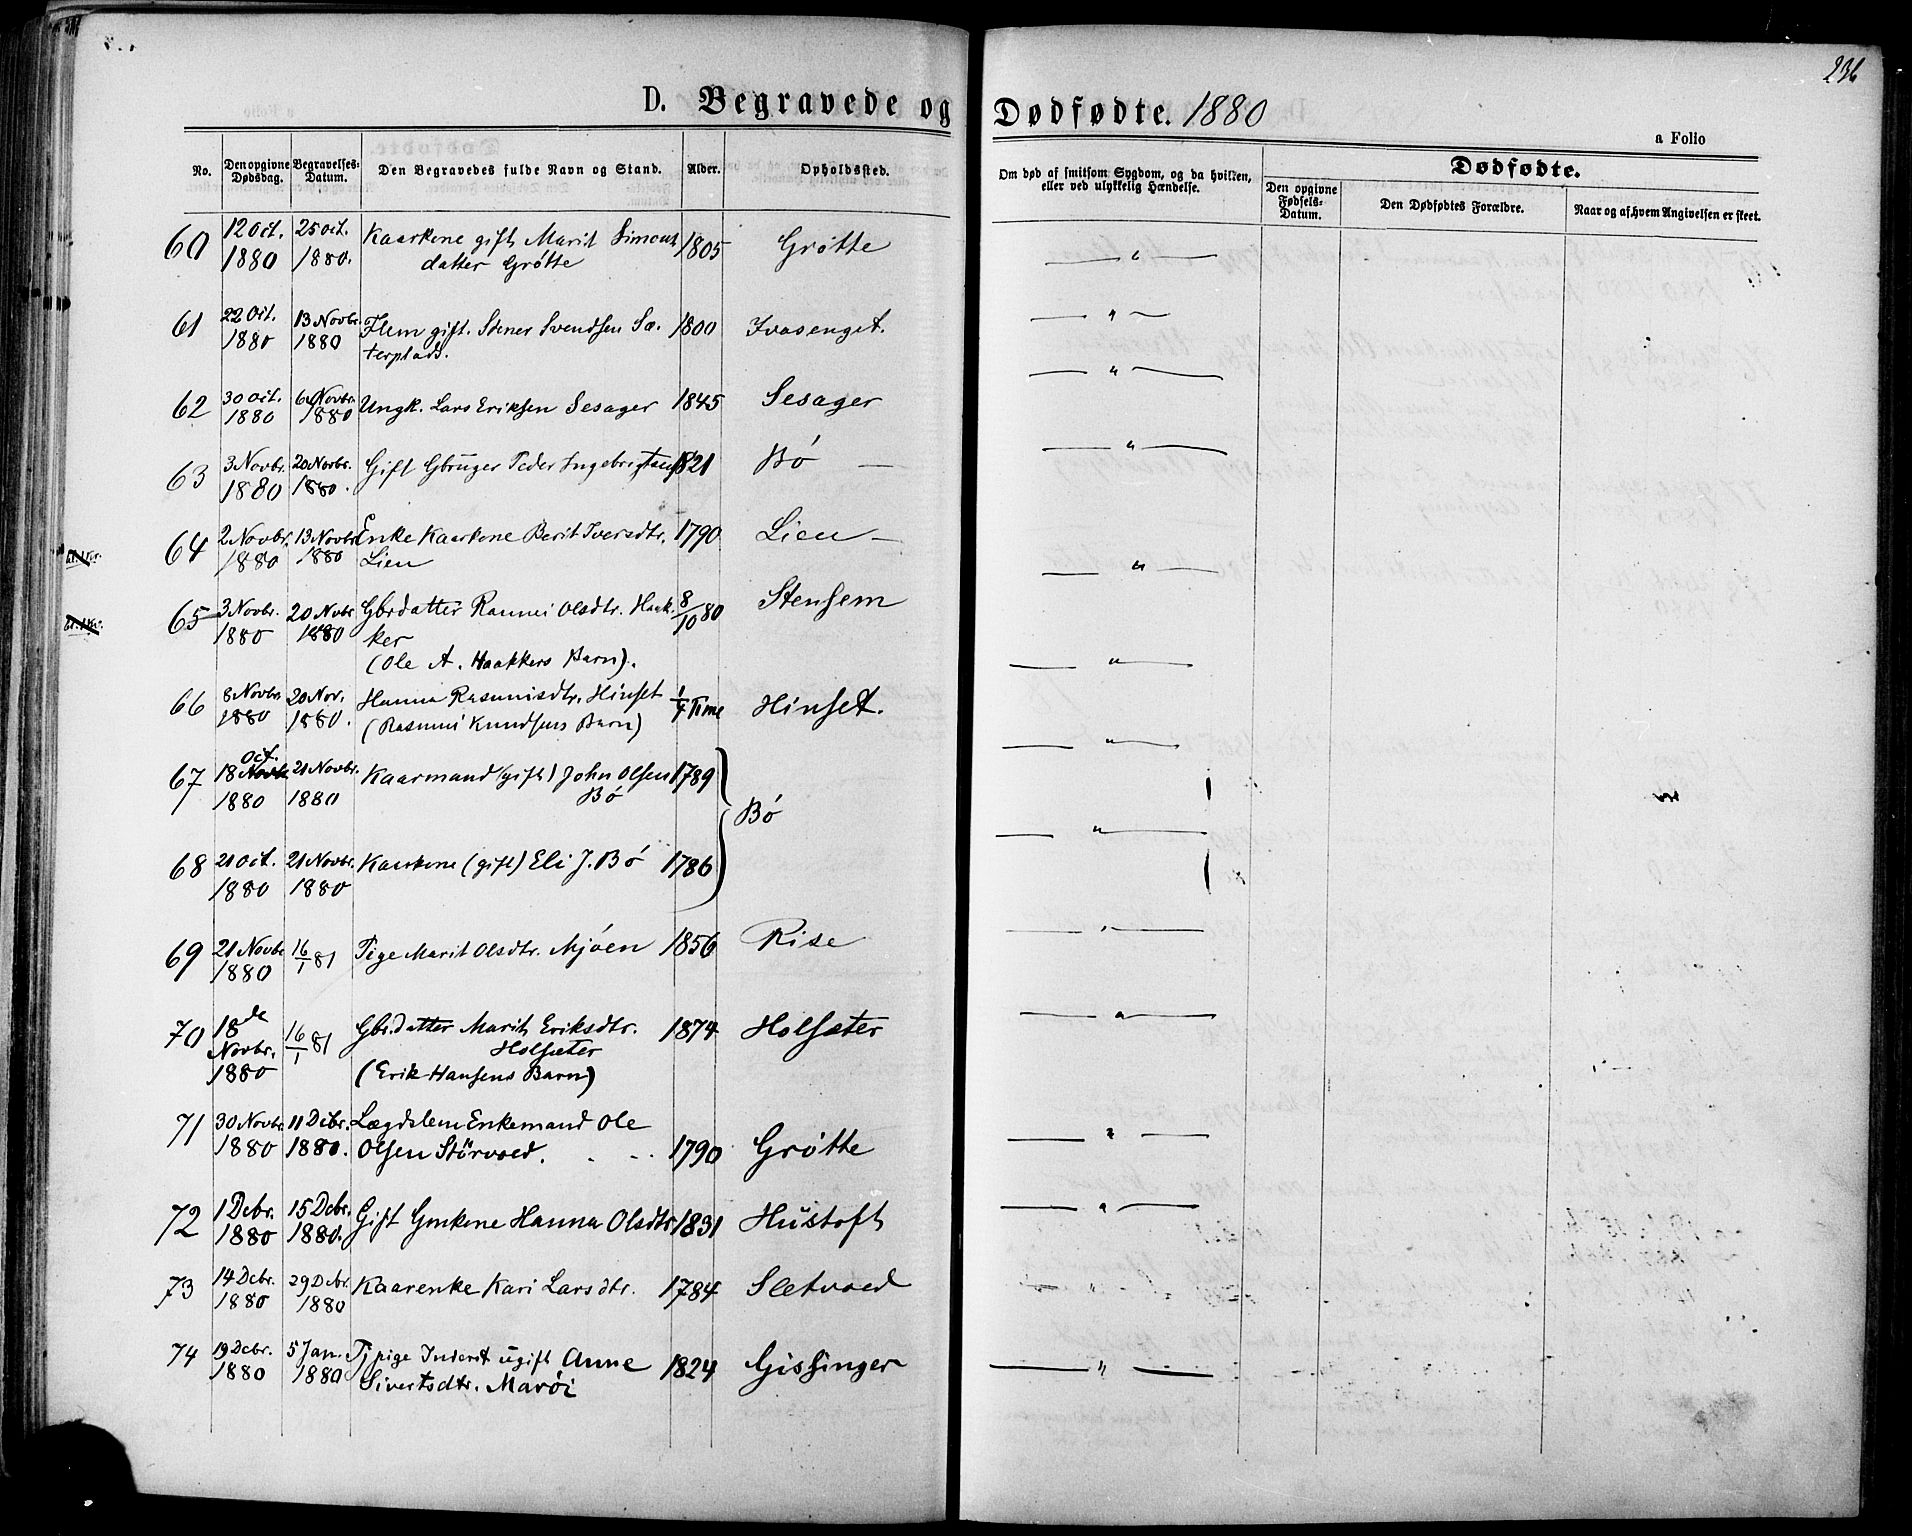 236
D. Begravede og Dødfødte. 1880
a Folio
No.
Den opgivne Dødsdag.
Begravelses-Datum.
Den Begravedes fulde Navn og Stand.
Alder.
Opholdssted.
Om død af smitsom Sygdom, og da hvilken, eller ved ulykkelig Hændelse.
Dødfødte.
Den opgivne Fødsels-Datum.
Den Dødfødtes Forældre.
Naar og af hvem Angivelsen er skeet.
60 12 Oct. 25 Oct. Kaarkone gift Marit Simons 1805 Grøtte — " —
1880 1880. datter Grøtte
61 22 Oct. 13 Novbr. gift. Stener Svendsen Sæ- 1800 — " —
1880 1880 terplads.
62 30 Oct. 6 Novbr. Ungk. Lars Eriksen Sesager 1845 Sesager — " —
1880 1880
63 3 Novbr. 20 Novbr. Gift Gbruger Peder 1821 Bø — — " —
1880 1880.
64 2 Novbr. 13 Novbr. Enke Kaarkone Berit Iversdtr. 1790 Lien — — " —
1880 1880 Lien
65 3 Novbr. 20 Novbr. Gbrdatter Olsdtr. Haak- 8/10 80 Stensem — " —
1880 1880 ker
(Ole A. Haakkers Barn).
66 8 Novbr. 20 Nov. Hanna Rasmusdtr. Hinset 1/4 Time Hinset. — " —
1880 1880. (Rasmus Knudsens Barn)
Oct.
67 18 Novbr. 21 Novbr. Kaarmand (gift) John Olsen 1789 Bø — " —
1880 1880 Bø
68 21 Oct. 21 Novbr. Kaarkone (gift) Eli J. Bø 1786
1880 1880
69 21 Novbr. 16/1 81 Pige Marit Olsdtr. Mjøen 1856 Rise — " —
1880
70 18de 16/1 81 Gbr.datter Marit Eriksdtr. 1874 Holsæter — " —
Novbr. Holsæter
1880 (Erik Hansens Barn)
71 30 Novbr. 11 Decbr. Lægdslem Enkemand Ole
1880 1880. Olsen Störvoed. 1790 Grøtte — " —
72 1 Debr. 15 Debr. Gift Hanna Olsdtr 1831 Hüstoft — " —
1880 1880.
73 14 Debr. 29 Debr. Kaarenke Kari Larsdtr. 1784 Sletvoed — " —
1880 1880
74 19 Debr. 5 Jan. Tj pige Inderst ugift Anne 1824 Gissinger — " —
1880 1880 Sivertsdtr. Marøi